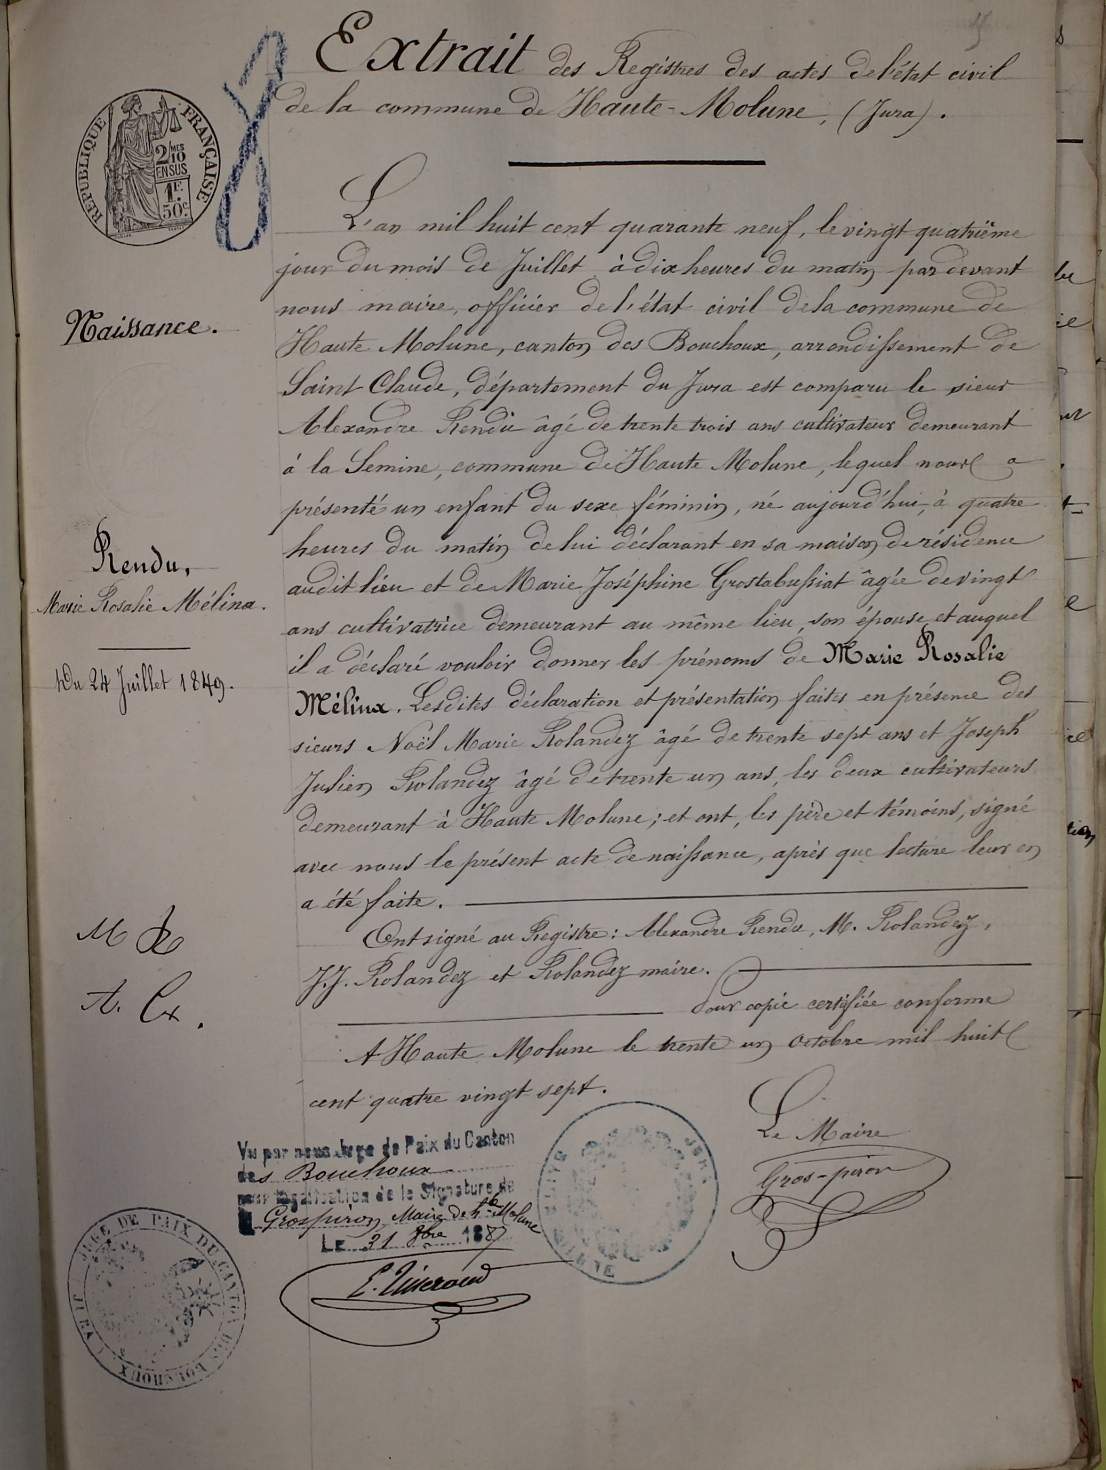 Extrait des Registres des actes de l'état civil
de la commune de Haute-Molune, (Jura).
RÉPUBLIQUE FRANÇAISE
2/10
EN SUS
1F.
50c
L'an mil huit cent quarante neuf, le vingt quatrième
jour du mois de Juillet à dix heures du matin par devant
nous maire, officier de l'état civil de la commune de
Haute Molune, canton des Bouchoux, arrondissement de
Saint Claude, département du Jura est comparu le sieur
Alexandre Rendu âgé de trente trois ans cultivateur demeurant
à la Semine, commune de Haute Molune, lequel nous a
présenté un enfant du sexe féminin, né aujourd'hui, à quatre
heures du matin de lui déclarant en sa maison de résidence
audit lieu et de Marie Joséphine Grostabussiat âgée de vingt
ans cultivatrice demeurant au même lieu, son épouse et auquel
il a déclaré vouloir donner les prénoms de Marie Rosalie
Mélina. Lesdites déclaration et présentation faites en présence des
sieurs Noël Marie Rolandez âgé de trente sept ans et Joseph
Julien Rolandez âgé de trente un ans, les deux cultivateurs
demeurant à Haute Molune; et ont, les père et témoins, signé
avec nous le présent acte de naissance, après que lecture leur en
a été faite.
Ont signé au Registre: Alexandre Rendu, M. Rolandez,
J.J. Rolandez et Rolandez maire.
Pour copie certifiée conforme
A Haute Molune le trente un octobre mil huit
cent quatre vingt sept.
Le Maire
Gros-piron
Naissance.
Rendu,
Marie Rosalie Mélina.
Du 24 Juillet 1849.
Vu par nous Juge de Paix du Canton
des Bouchoux
pour légalisation de la Signature de
M. Grospiron, Maire de Hte Molune
Le 31 8bre 1887
JUGE DE PAIX DU CANTON DES BOUCHOUX
JURA